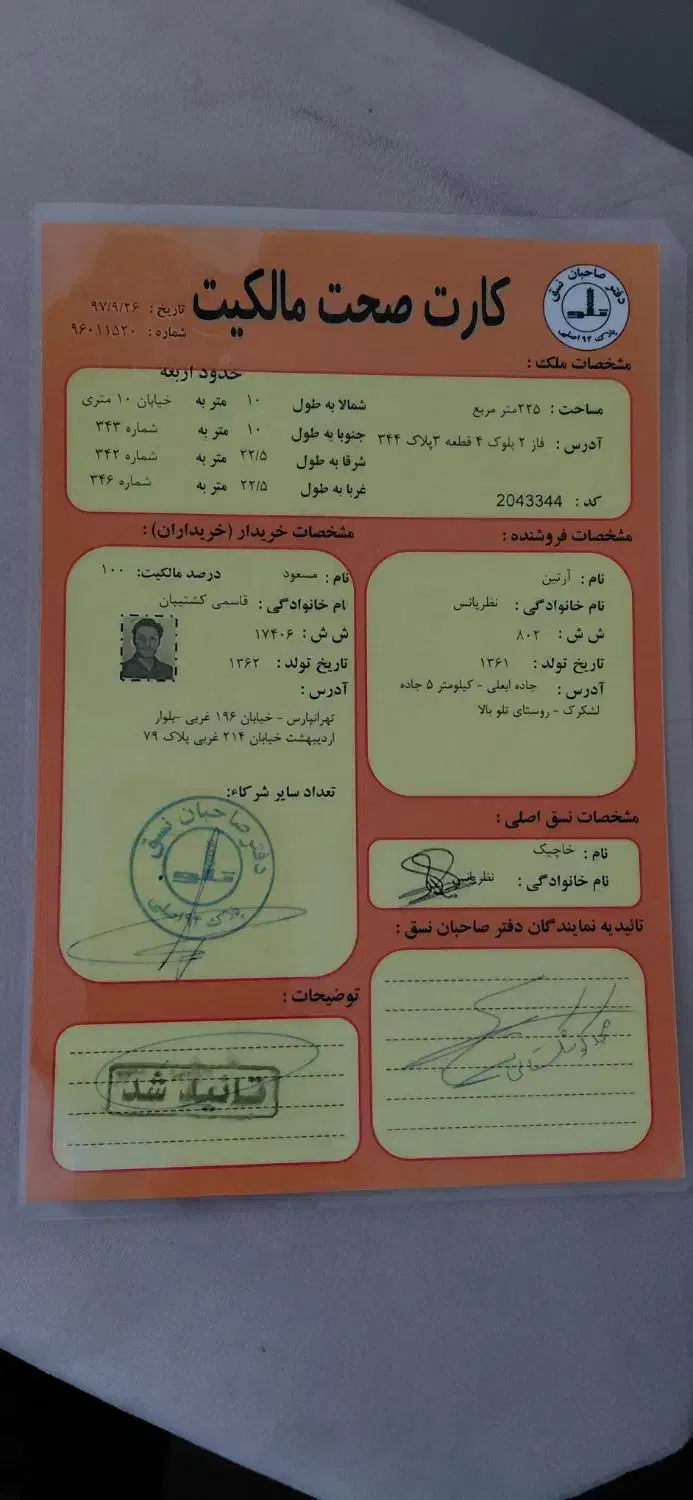 دفتر صاحبان نسق
تلو
پلاک ۹۴ اصلی
کارت صحت مالکیت
تاریخ : ۹۷/۹/۲۶
شماره : ۹۶۰۱۱۵۲۰
مشخصات ملک :
مساحت : ۲۲۵متر مربع
آدرس : فاز ۲ بلوک ۴ قطعه ۳پلاک ۳۴۴
کد : 2043344
حدود اربعه
شمالا به طول ۱۰ متر به خیابان ۱۰ متری
جنوبا به طول ۱۰ متر به شماره ۳۴۳
شرقا به طول ۲۲/۵ متر به شماره ۳۴۲
غربا به طول ۲۲/۵ متر به شماره ۳۴۶
مشخصات فروشنده :
نام : آرتین
نام خانوادگی : نظریانس
ش ش : ۸۰۲
تاریخ تولد : ۱۳۶۱
آدرس : جاده ابعلی - کیلومتر ۵ جاده
لشکرک - روستای تلو بالا
مشخصات خریدار (خریداران) :
نام : مسعود درصد مالکیت: ۱۰۰
نام خانوادگی : قاسمی کشتیبان
ش ش : ۱۷۴۰۶
تاریخ تولد : ۱۳۶۲
آدرس :
تهرانپارس - خیابان ۱۹۶ غربی -بلوار
اردیبهشت خیابان ۲۱۴ غربی پلاک ۷۹
تعداد سایر شرکاء:
دفتر صاحبان نسق
تلو
پلاک ۹۴ اصلی
مشخصات نسق اصلی :
نام : خاچیک
نام خانوادگی : نظریانس
تائیدیه نمایندگان دفتر صاحبان نسق :
توضیحات :
تائید شد